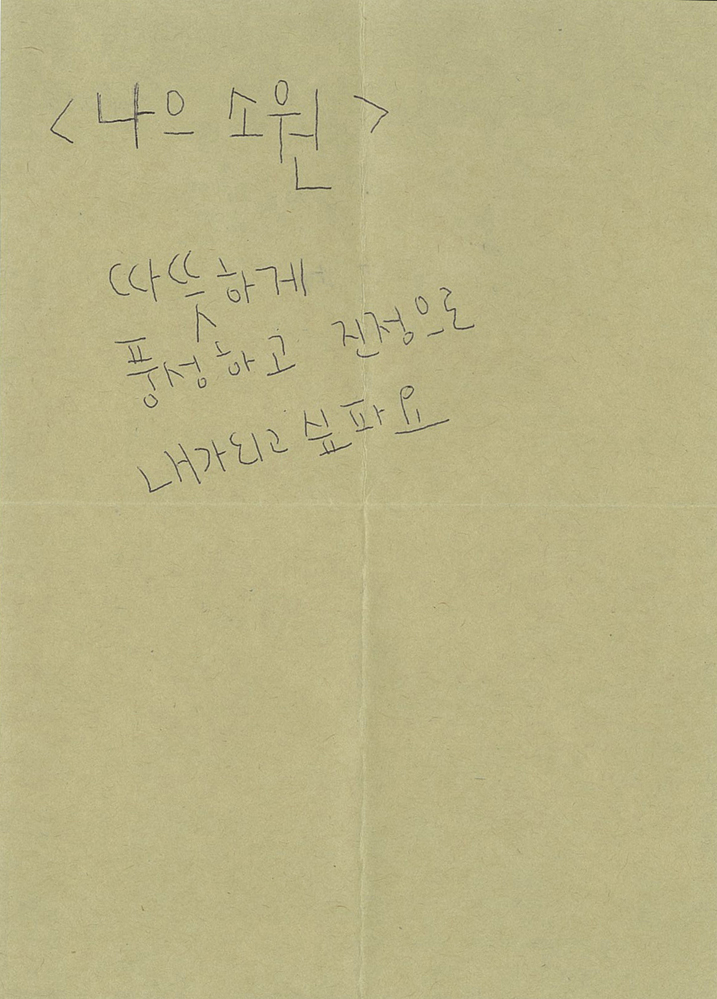 <나으 소원>
따뜻하게
풍성하고 진정으로
내가되고싶파요